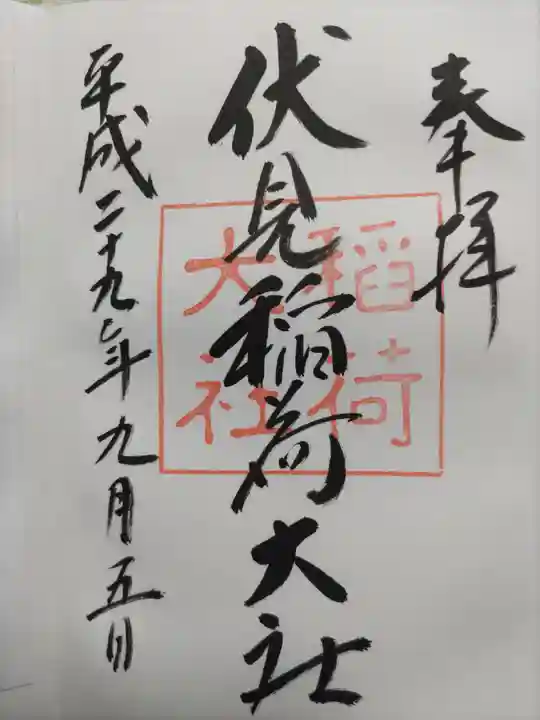 奉拝
伏見稲荷大社
稲荷
大社
平成二十九年九月五日